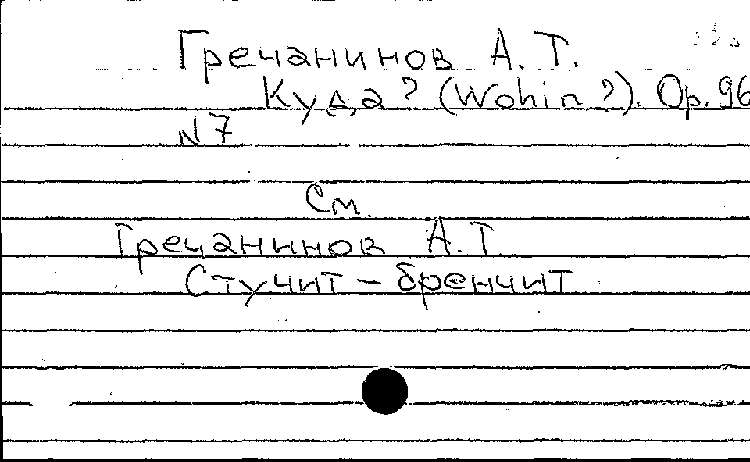 Гречанинов А. Т.
Куда? (Wohin?). Op. 96
N 7
См.
Гречанинов А. Т.
Стучит - бренчит